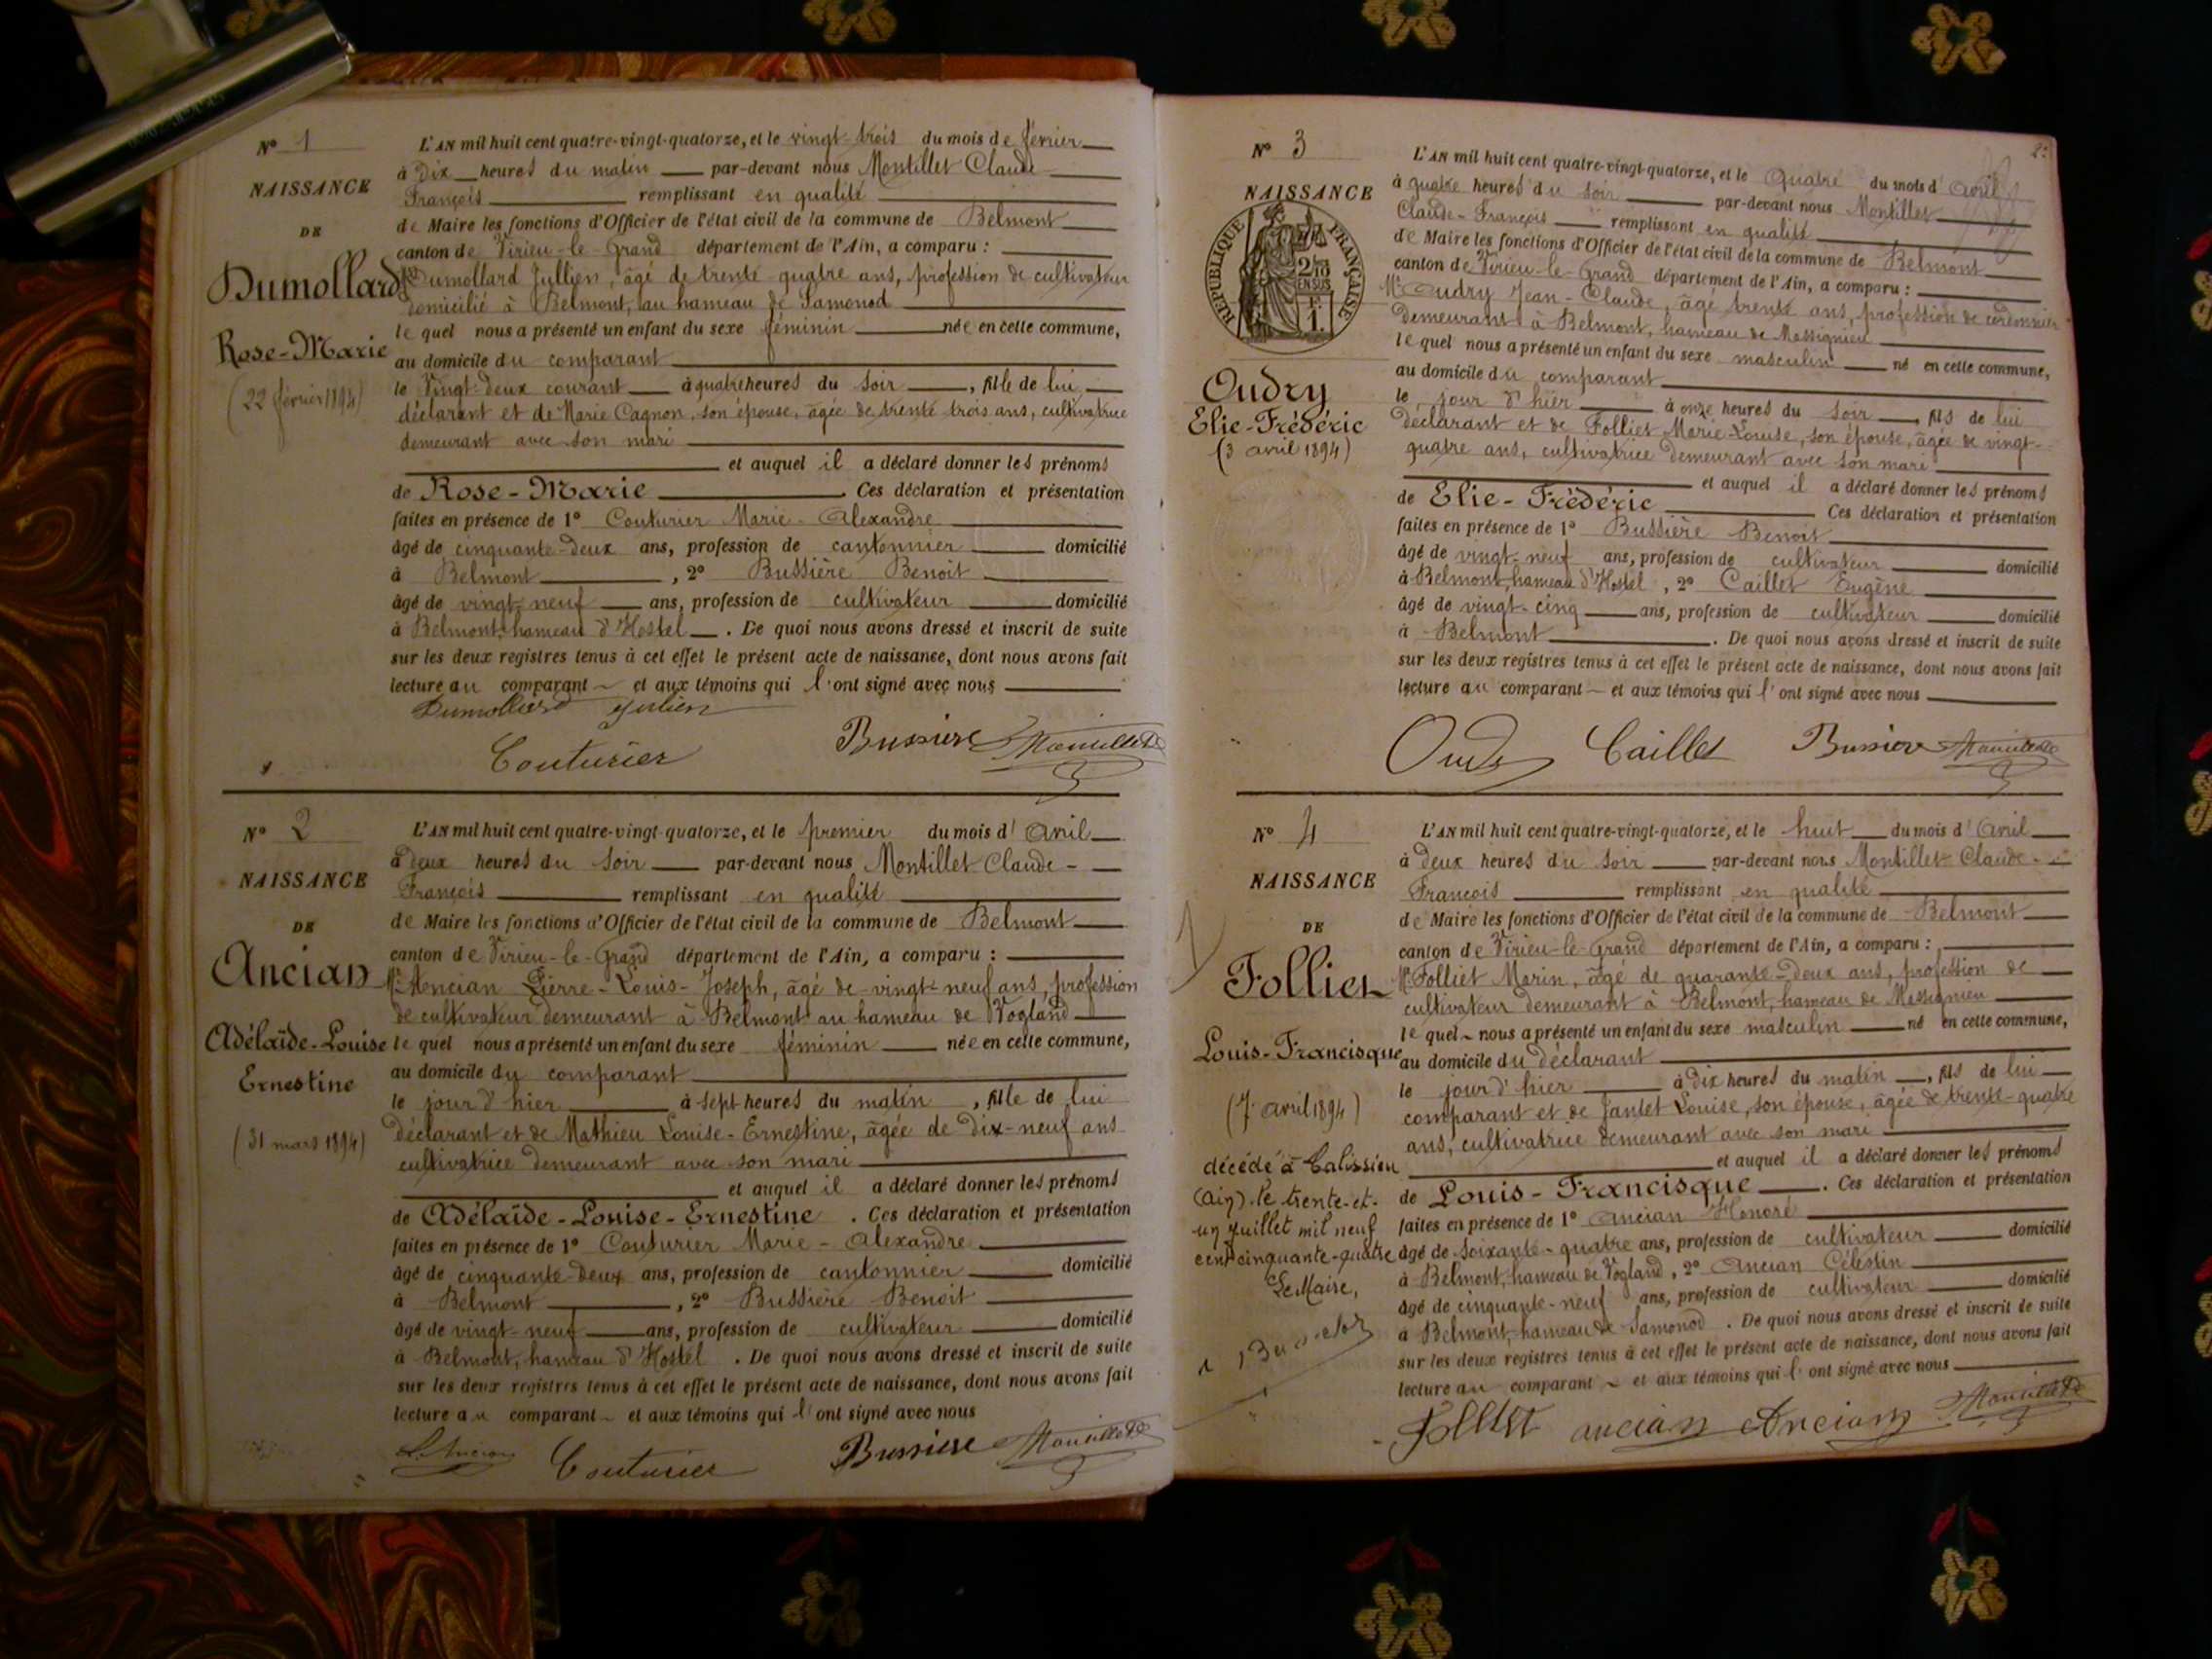 N° 1
NAISSANCE
DE
Dumollard
Rose-Marie
(22 février 1894)
L'AN mil huit cent quatre-vingt-quatorze, et le vingt-trois du mois de février
à Dix heures du matin par-devant nous Montillet Claude
François remplissant en qualité
de Maire les fonctions d'Officier de l'état civil de la commune de Belmont
canton de Virieu-le-Grand département de l'Ain, a comparu :
Mr Dumollard Jullien, âgé de trente quatre ans, profession de cultivateur
domicilié à Belmont, au hameau de Samonod
lequel nous a présenté un enfant du sexe féminin née en cette commune,
au domicile du comparant
le Vingt-deux courant à quatre heures du soir, fille de lui
déclarant et de Marie Cagnon, son épouse, âgée de trente trois ans, cultivatrice
demeurant avec son mari
et auquel il a déclaré donner les prénoms
de Rose-Marie. Ces déclaration et présentation
faites en présence de 1° Couturier Marie-Alexandre
âgé de cinquante-deux ans, profession de cantonnier domicilié
à Belmont, 2° Bussière Benoit
âgé de vingt-neuf ans, profession de cultivateur domicilié
à Belmont, hameau d'Hostel. De quoi nous avons dressé et inscrit de suite
sur les deux registres tenus à cet effet le présent acte de naissance, dont nous avons fait
lecture au comparant et aux témoins qui l'ont signé avec nous
Dumollard Julien
Couturier Bussiere Montillet
N° 2
NAISSANCE
DE
Ancian
Adélaïde-Louise
Ernestine
(31 mars 1894)
L'AN mil huit cent quatre-vingt-quatorze, et le premier du mois d'avril
à deux heures du soir par-devant nous Montillet Claude-
François remplissant en qualité
de Maire les fonctions d'Officier de l'état civil de la commune de Belmont
canton de Virieu-le-Grand département de l'Ain, a comparu :
Mr Ancian Pierre-Louis-Joseph, âgé de vingt-neuf ans, profession
de cultivateur demeurant à Belmont au hameau de Vogland
lequel nous a présenté un enfant du sexe féminin née en cette commune,
au domicile du comparant
le jour d'hier à sept heures du matin, fille de lui
déclarant et de Mathieu Louise-Ernestine, âgée de dix-neuf ans
cultivatrice demeurant avec son mari
et auquel il a déclaré donner les prénoms
de Adélaïde-Louise-Ernestine. Ces déclaration et présentation
faites en présence de 1° Couturier Marie-Alexandre
âgé de cinquante-deux ans, profession de cantonnier domicilié
à Belmont, 2° Bussière Benoit
âgé de vingt-neuf ans, profession de cultivateur domicilié
à Belmont, hameau d'Hostel. De quoi nous avons dressé et inscrit de suite
sur les deux registres tenus à cet effet le présent acte de naissance, dont nous avons fait
lecture au comparant et aux témoins qui l'ont signé avec nous
L. Ancian Couturier Bussiere Montillet
2
N° 3
NAISSANCE
REPUBLIQUE FRANÇAISE
2/10
EN SUS
1F
Oudry
Elie-Frédéric
(3 avril 1894)
L'AN mil huit cent quatre-vingt-quatorze, et le Quatre du mois d'avril
à quatre heures du soir par-devant nous Montillet
Claude-François remplissant en qualité
de Maire les fonctions d'Officier de l'état civil de la commune de Belmont
canton de Virieu-le-Grand département de l'Ain, a comparu :
Mr Oudry Jean-Claude, âgé trente ans, profession de cordonnier
demeurant à Belmont, hameau de Massignieu
lequel nous a présenté un enfant du sexe masculin né en cette commune,
au domicile du comparant
le jour d'hier à onze heures du soir, fils de lui
déclarant et de Folliet Marie-Louise, son épouse, âgée de vingt-
quatre ans, cultivatrice demeurant avec son mari
et auquel il a déclaré donner les prénoms
de Elie-Frédéric Ces déclaration et présentation
faites en présence de 1° Bussière Benoit
âgé de vingt-neuf ans, profession de cultivateur domicilié
à Belmont, hameau d'Hostel, 2° Caillet Eugène
âgé de vingt-cinq ans, profession de cultivateur domicilié
à Belmont. De quoi nous avons dressé et inscrit de suite
sur les deux registres tenus à cet effet le présent acte de naissance, dont nous avons fait
lecture au comparant et aux témoins qui l'ont signé avec nous
Oudry Caillet Bussiere Montillet
N° 4
NAISSANCE
DE
Folliet
Louis-Francisque
(7 avril 1894)
décédé à Talissieu
(Ain) le trente-et-
un juillet mil neuf
cent cinquante-quatre
Le Maire,
L'AN mil huit cent quatre-vingt-quatorze, et le huit du mois d'avril
à deux heures du soir par-devant nous Montillet Claude-
François remplissant en qualité
de Maire les fonctions d'Officier de l'état civil de la commune de Belmont
canton de Virieu-le-Grand département de l'Ain, a comparu :
Mr Folliet Marin, âgé de quarante-deux ans, profession de
cultivateur demeurant à Belmont, hameau de Massignieu
lequel nous a présenté un enfant du sexe masculin né en cette commune,
au domicile du déclarant
le jour d'hier à dix heures du matin, fils de lui
comparant et de Jantet Louise, son épouse, âgée de trente-quatre
ans, cultivatrice demeurant avec son mari
et auquel il a déclaré donner les prénoms
de Louis-Francisque. Ces déclaration et présentation
faites en présence de 1° Ancian Honoré
âgé de soixante-quatre ans, profession de cultivateur domicilié
à Belmont, hameau de Vogland, 2° Ancian Célestin
âgé de cinquante-neuf ans, profession de cultivateur domicilié
à Belmont, hameau de Samonod. De quoi nous avons dressé et inscrit de suite
sur les deux registres tenus à cet effet le présent acte de naissance, dont nous avons fait
lecture au comparant et aux témoins qui l'ont signé avec nous
Folliet ancian Ancian Montillet